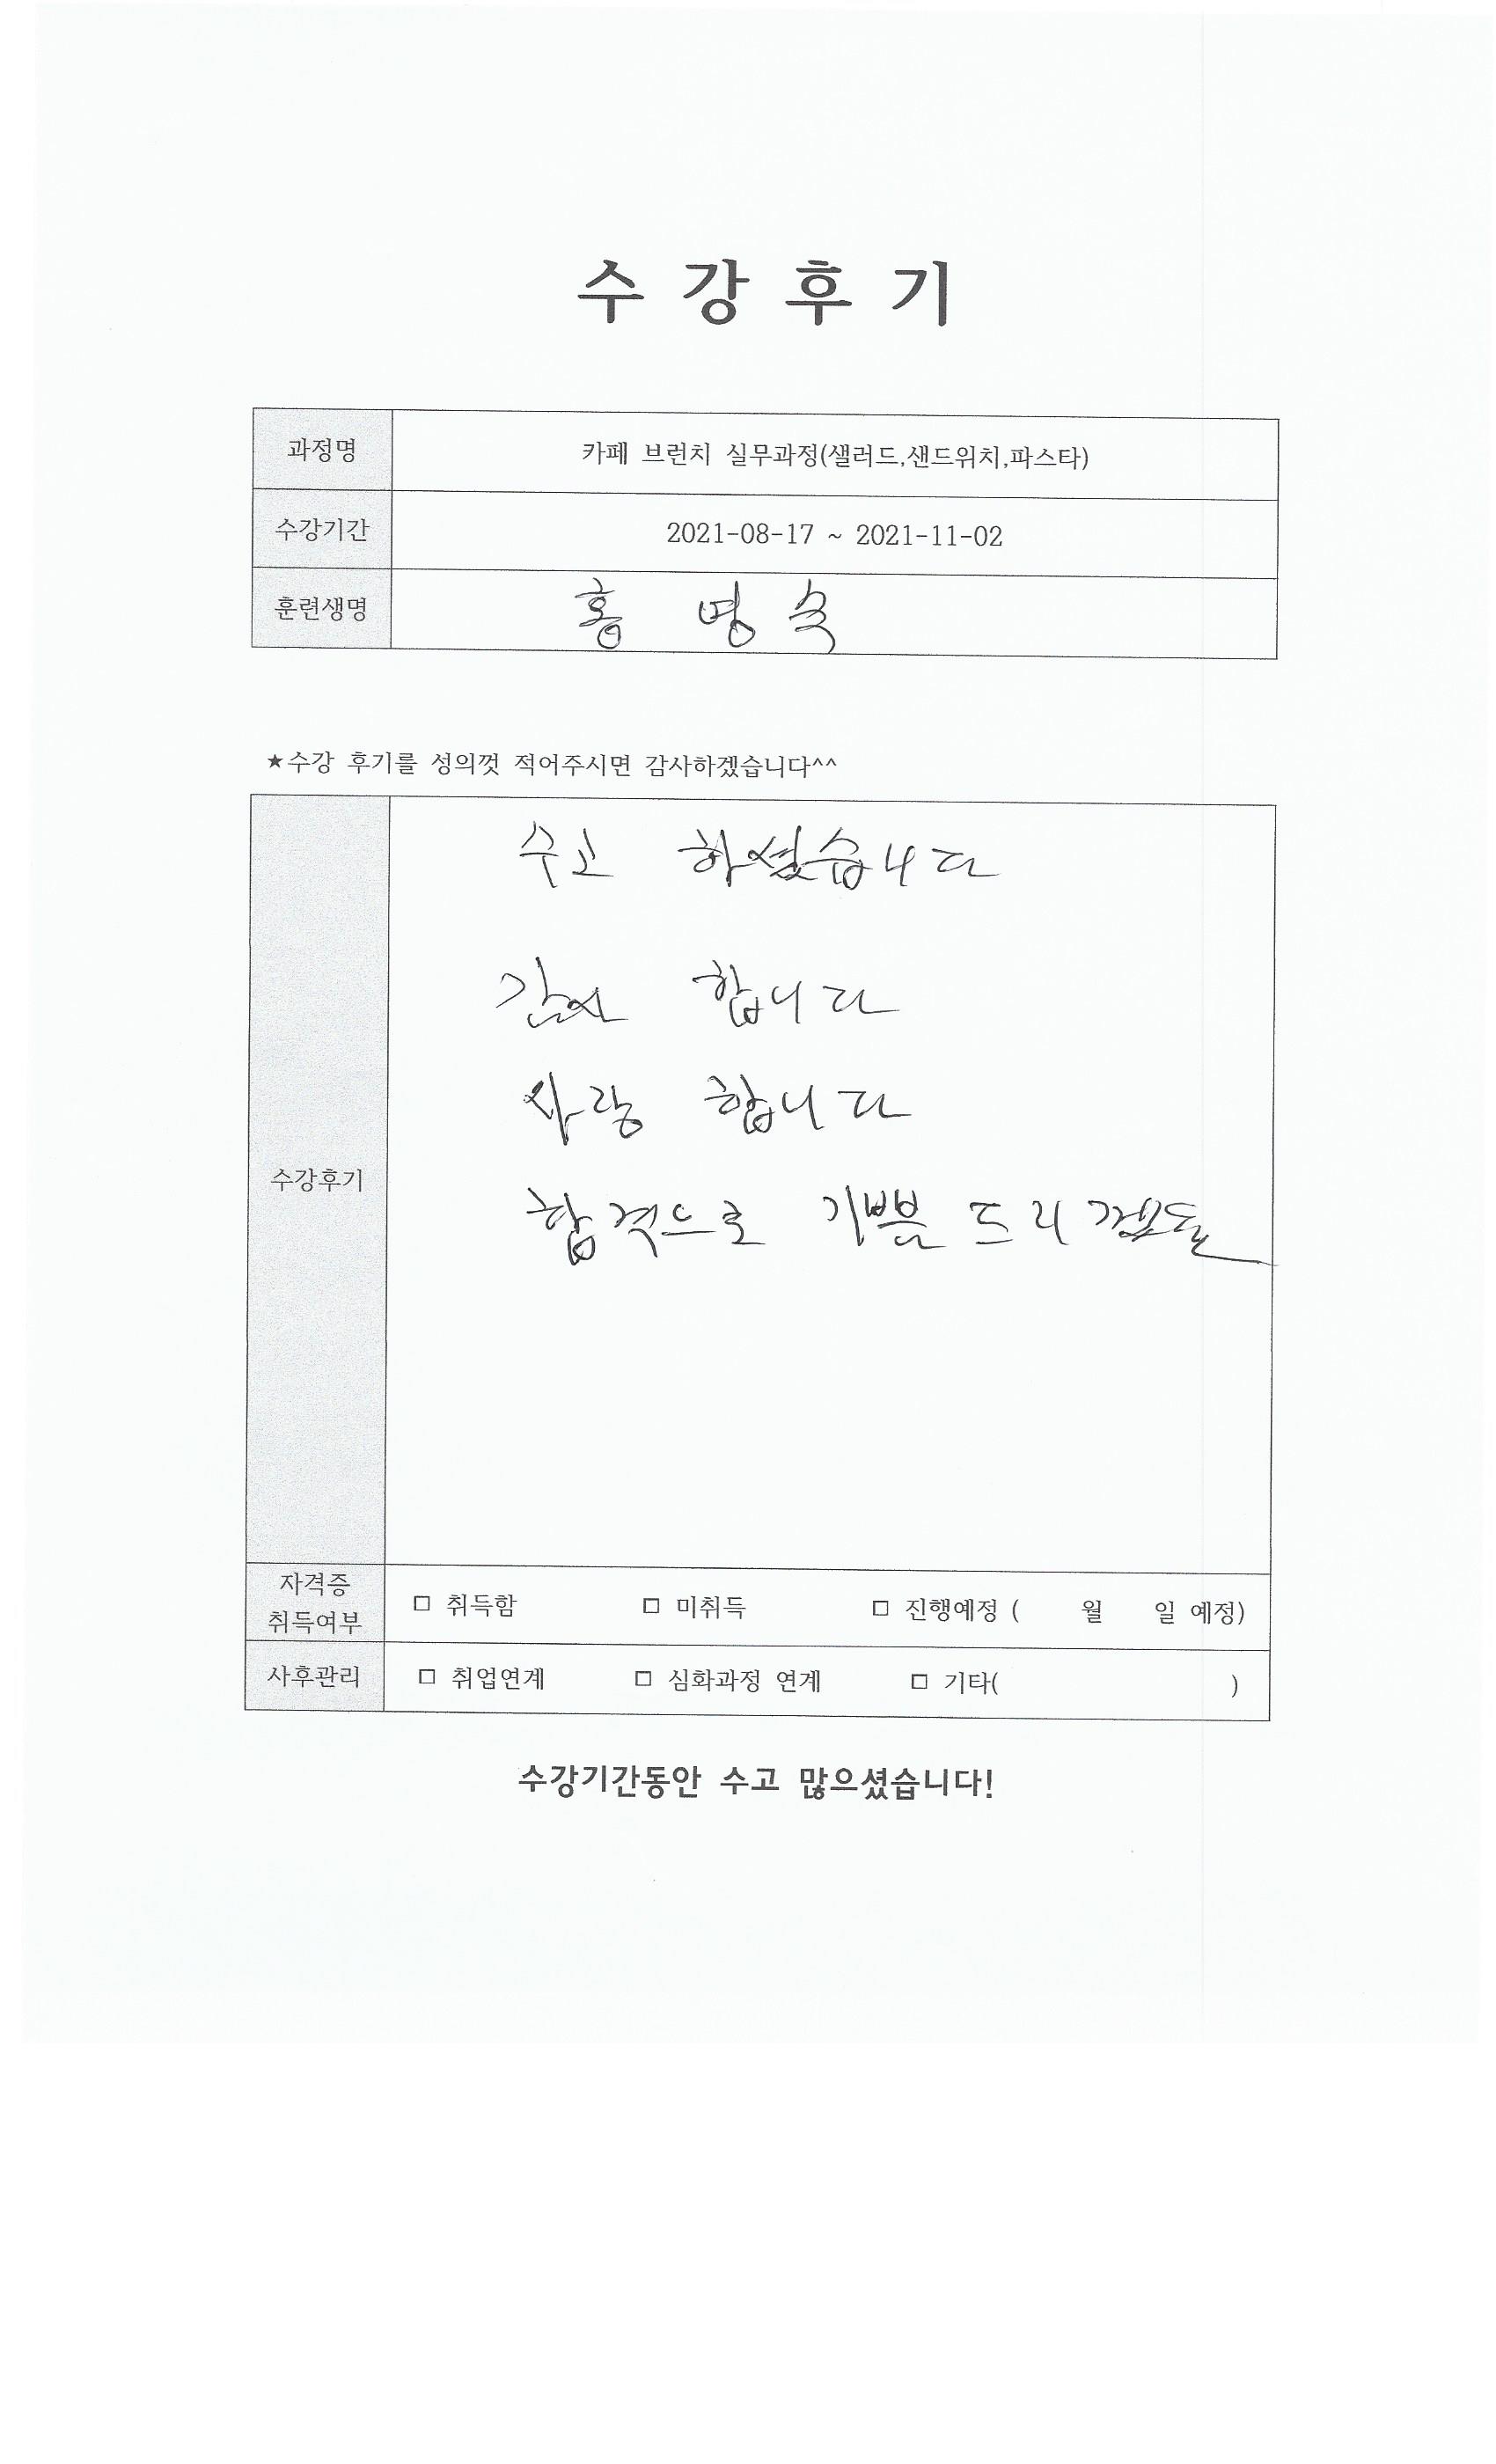 수 강 후 기
과정명 카페 브런치 실무과정(샐러드,샌드위치,파스타)
수강기간 2021-08-17 ~ 2021-11-02
훈련생명 홍 명 숙
★수강 후기를 성의껏 적어주시면 감사하겠습니다^^
수강후기
수고 하셨습니다
감사 합니다
사랑 합니다
합격으로 기쁨 드리
자격증
취득여부
□ 취득함 □ 미취득 □ 진행예정 ( 월 일 예정)
사후관리 □ 취업연계 □ 심화과정 연계 □ 기타( )
수강기간동안 수고 많으셨습니다!